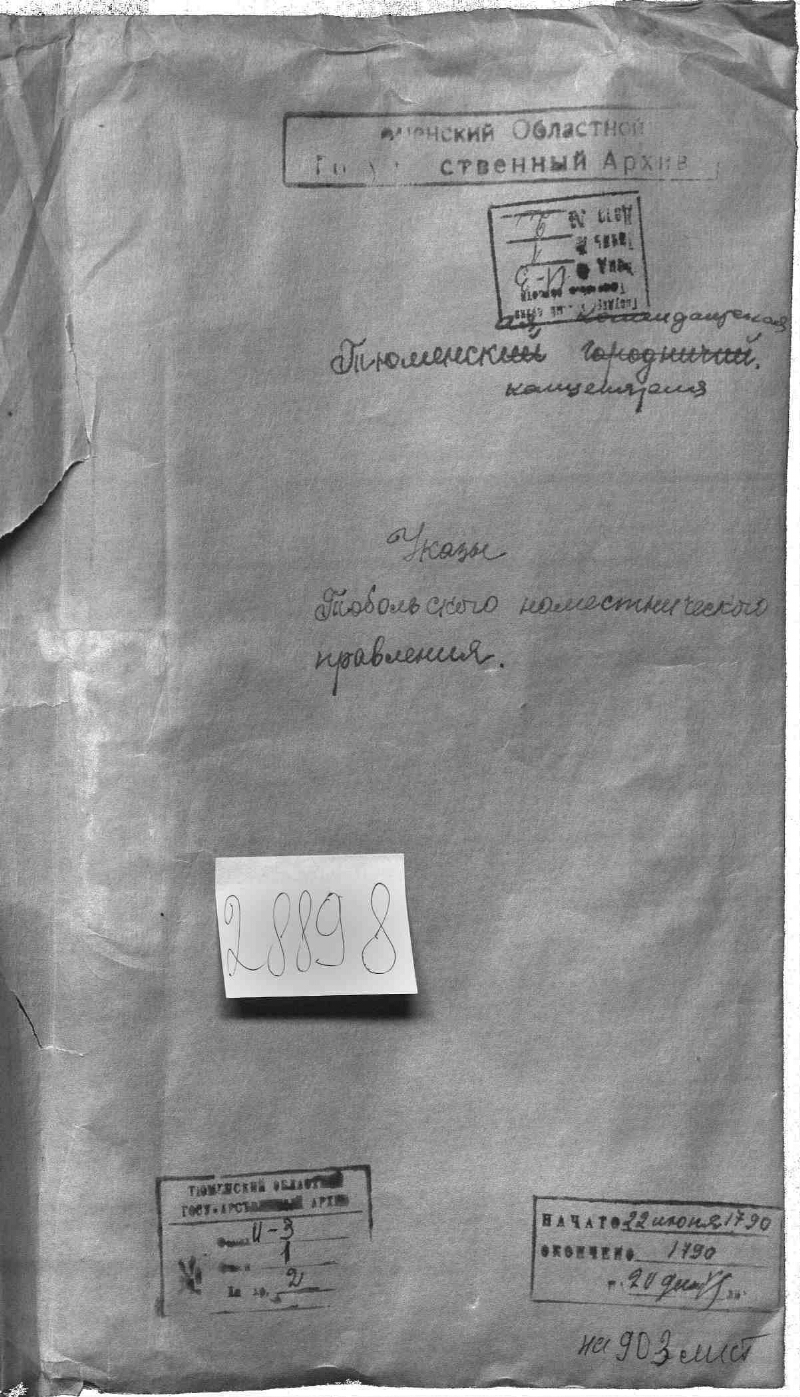 Тюменский Областной
Государственный Архив
Дело № 2
Опись № 1
Фонд № И-3
ая комендантская
Тюменский городничий.
канцелярия
Указы
Тобольского наместнического
правления.
28898
ТЮМЕНСКИЙ ОБЛАСТНОЙ
ГОСУДАРСТВЕННЫЙ АРХИВ
Фонд И-3
Опись 1
Ед. хр. 2
НАЧАТО 22 июня 1790
ОКОНЧЕНО 1790
г. 20
на 903 лист